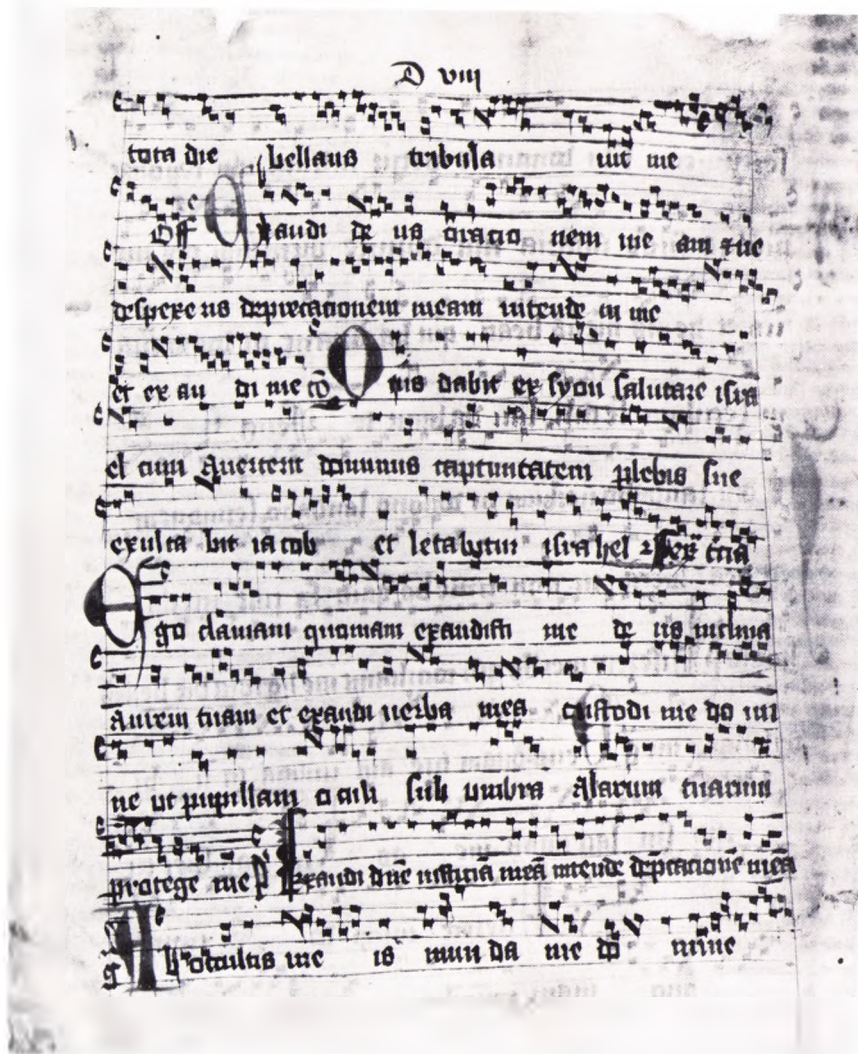 D viii
tota die bellans tribula uit me
Off Exaudi de us oratio nem me am et ne
despexe ris deprecationem meam intende in me
et ex au di me cō Quis dabit ex syon salutare isra
el cum Auerterit dominus captiuitatem plebis sue
exulta bit iacob et letabitur israhel
Ego clamaui quoniam exaudisti me de us inclina
Aurem tuam et exaudi uerba mea custodi me do mi
ne ut pupillam oculi sub umbra Alarum tuarum
protege me Exaudi dn̄e iusticiā meā intende dep̄cationē meā
Ab occultis me is mun da me do mine